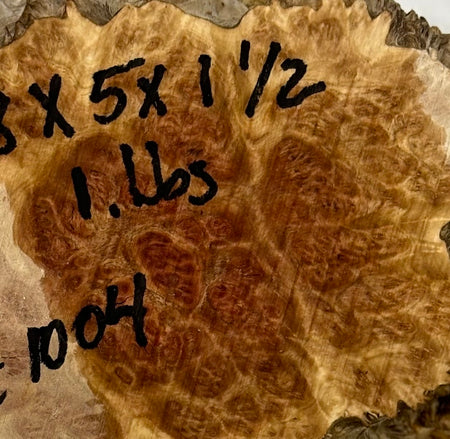 X 5 X 1 1/2
1.lbs
1004